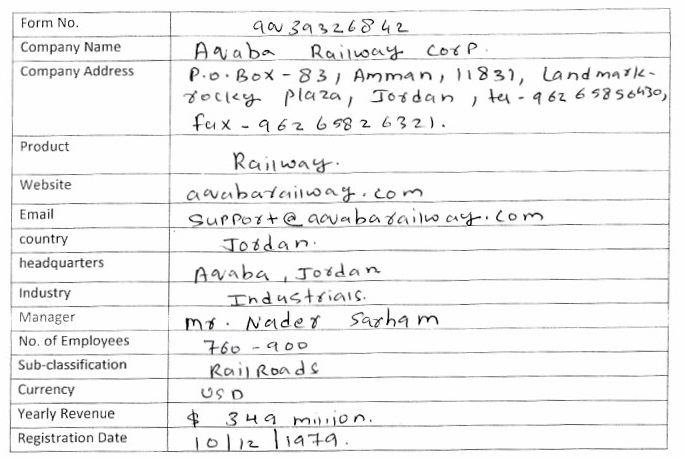 Form No. 9039326842
Company Name Aqaba Railway Corp.
Company Address P.O. Box - 83, Amman, 11831, Landmark-
rocky plaza, Jordan, tel - 962 65856430,
fax - 962 658 2 6321.
Product Railway.
Website aqabarailway.com
Email support@aqabarailway.com
country Jordan.
headquarters Aqaba, Jordan
Industry Industrials.
Manager Mr. Nader Sarham
No. of Employees 760 - 900
Sub-classification RailRoads
Currency USD
Yearly Revenue $ 349 million.
Registration Date 10/12/1979.